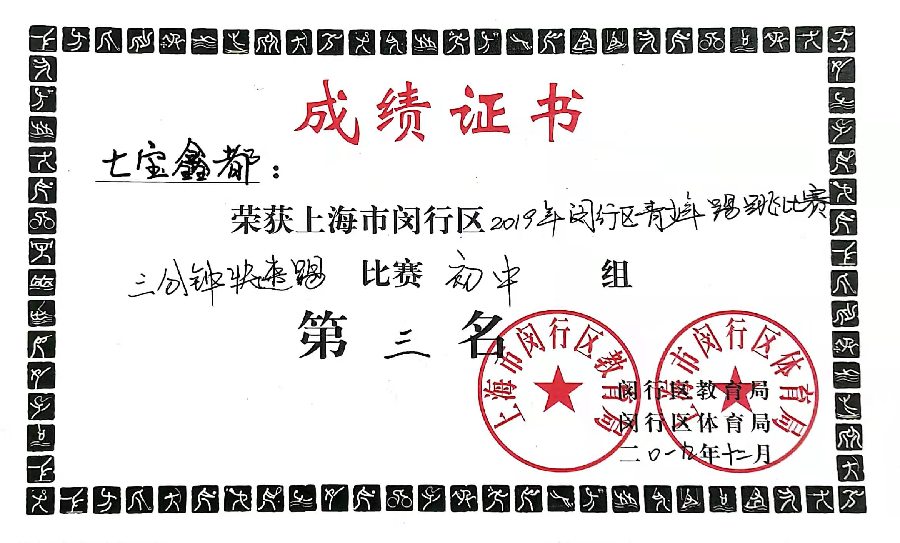 成绩证书
七宝鑫都：
荣获上海市闵行区2019年闵行区青少年踢跳比赛
三分钟快速踢 比赛 初中 组
第 三 名
上海市闵行区教育局
上海市闵行区体育局
闵行区教育局
闵行区体育局
二〇一九年十二月